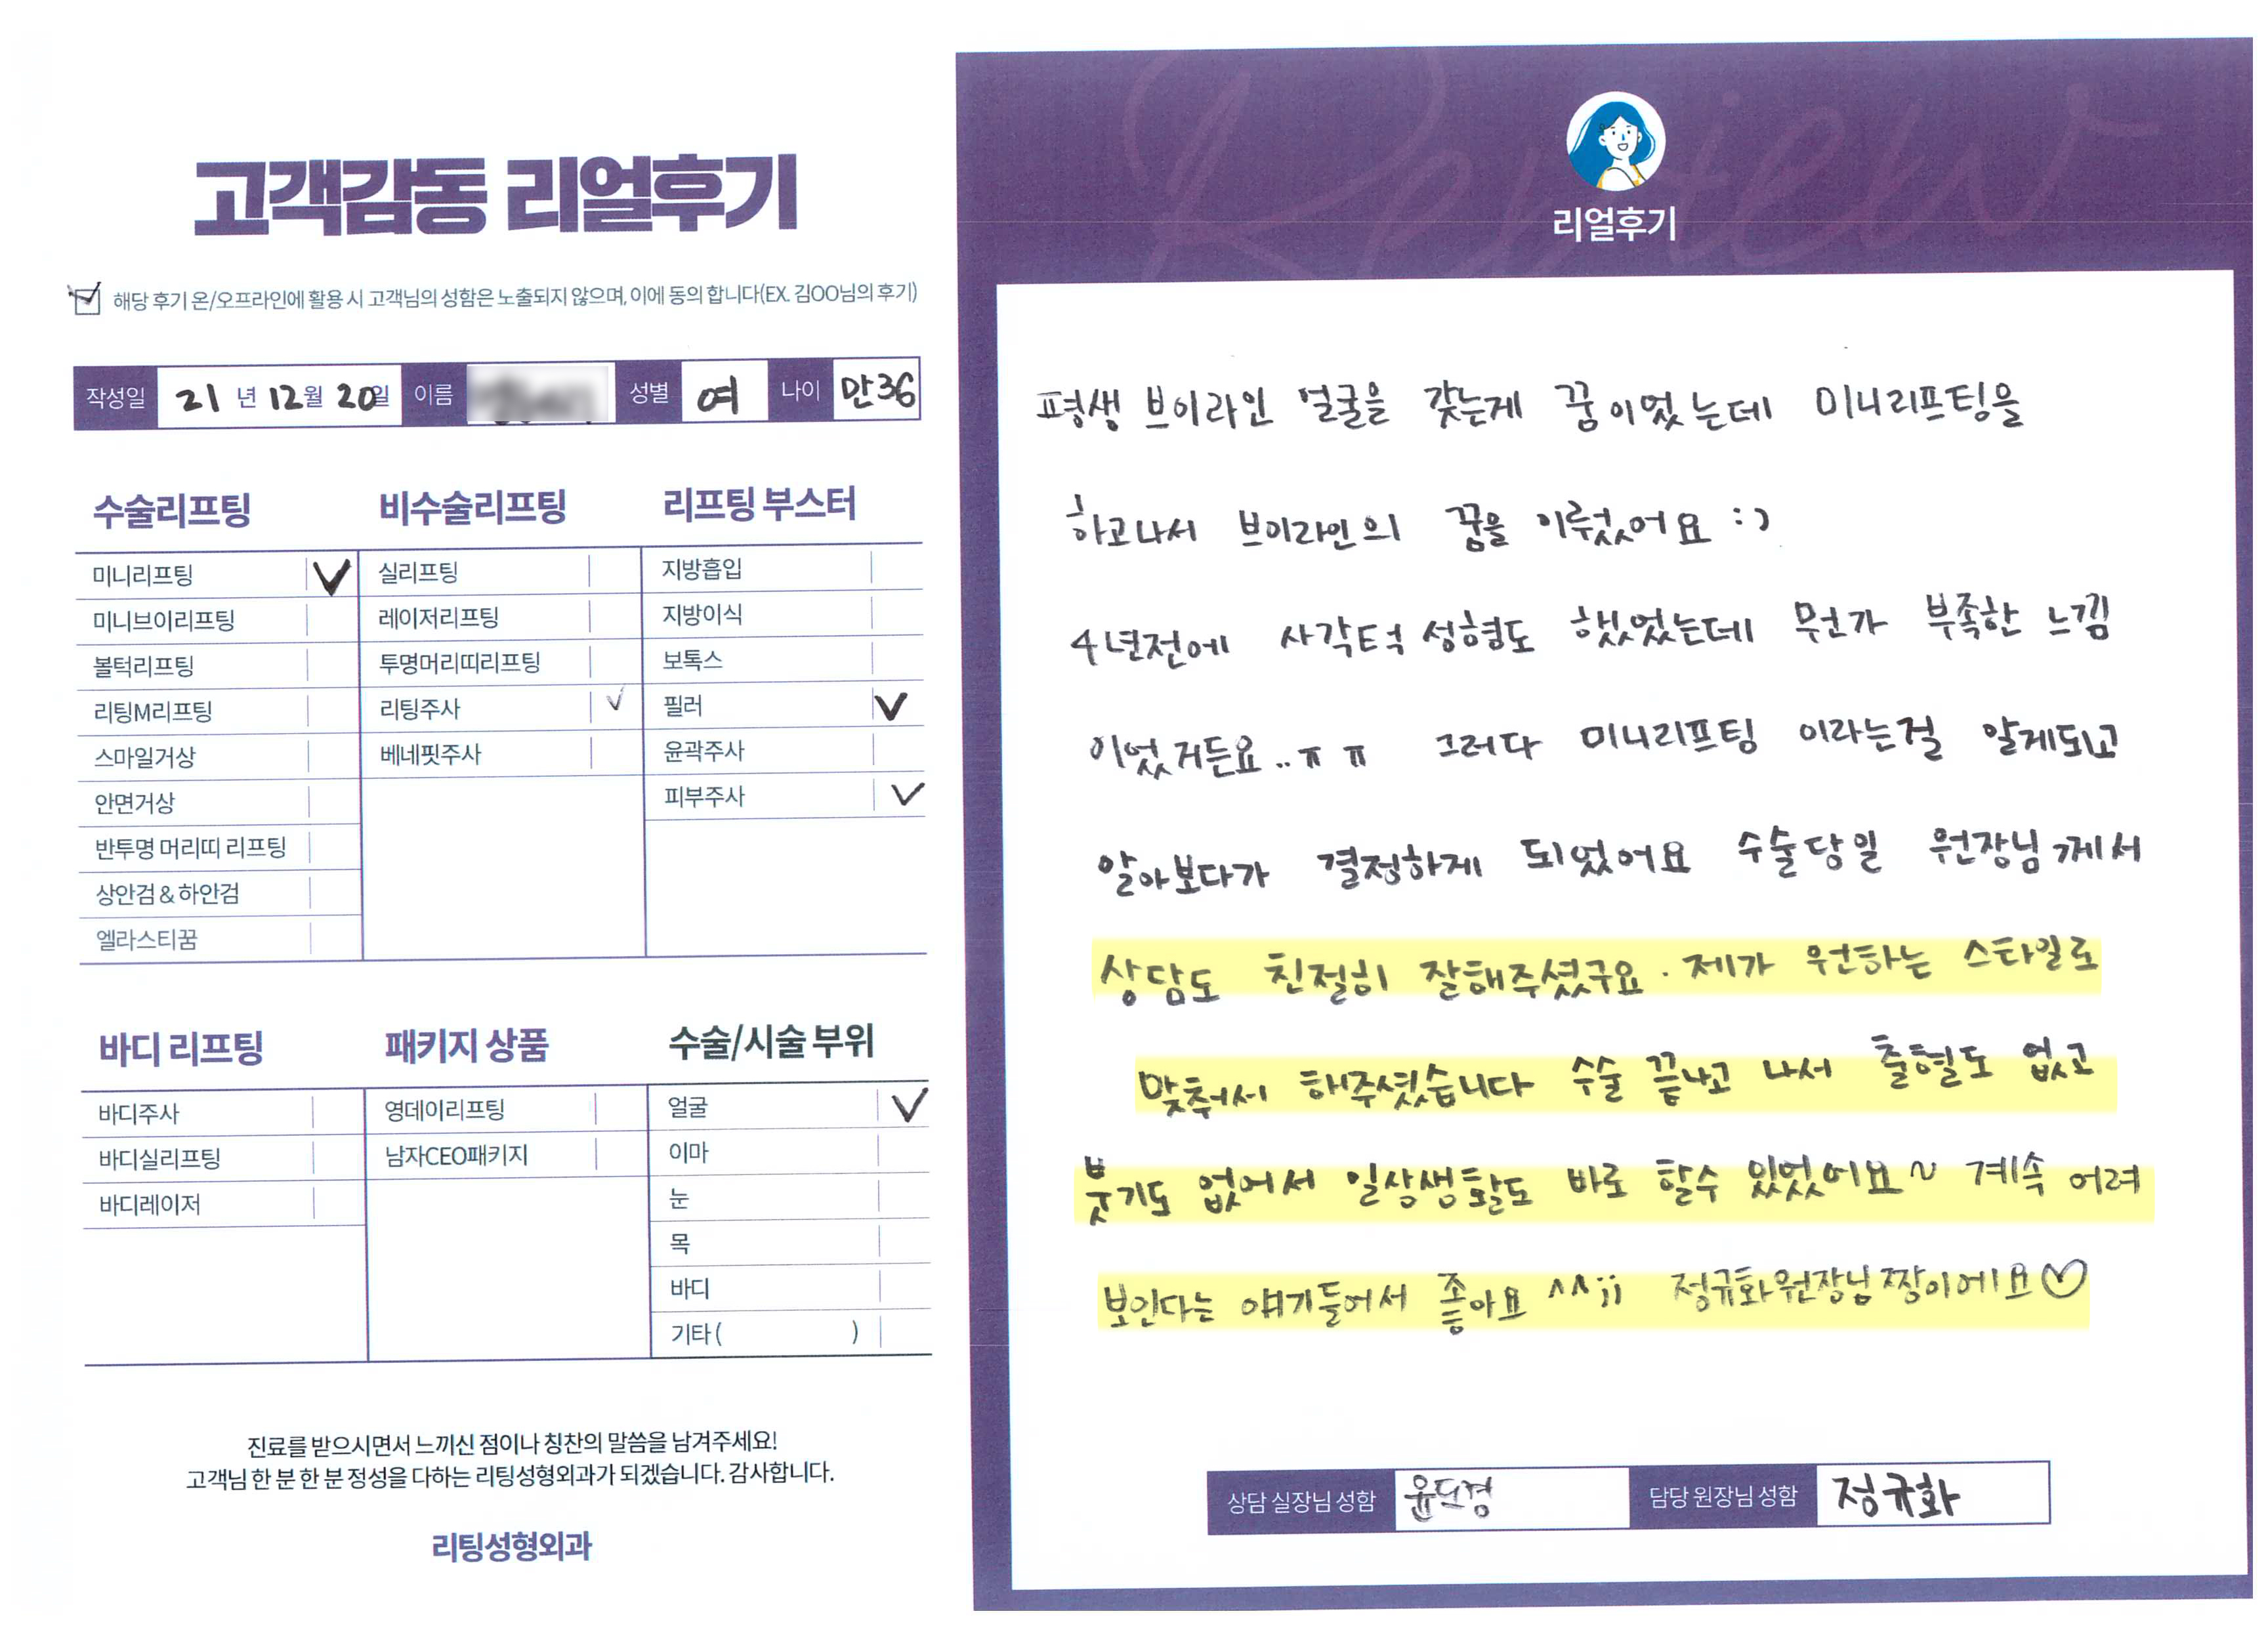 고객감동 리얼후기
해당 후기 온/오프라인에 활용 시 고객님의 성함은 노출되지 않으며, 이에 동의 합니다(EX. 김OO님의 후기)
작성일 21 년 12월 20일 이름 성별 여 나이 만36
수술리프팅
미니리프팅
미니브이리프팅
볼턱리프팅
리팅M리프팅
스마일거상
안면거상
반투명 머리띠 리프팅
상안검 & 하안검
엘라스티꿈
비수술리프팅
실리프팅
레이저리프팅
투명머리띠리프팅
리팅주사
베네핏주사
리프팅 부스터
지방흡입
지방이식
보톡스
필러
윤곽주사
피부주사
바디 리프팅
바디주사
바디실리프팅
바디레이저
패키지 상품
영데이리프팅
남자CEO패키지
수술/시술 부위
얼굴
이마
눈
목
바디
기타 ( )
진료를 받으시면서 느끼신 점이나 칭찬의 말씀을 남겨주세요!
고객님 한 분 한 분 정성을 다하는 리팅성형외과가 되겠습니다. 감사합니다.
리팅성형외과
Review
리얼후기
평생 브이라인 얼굴을 갖는게 꿈이었는데 미니리프팅을
하고나서 브이라인의 꿈을 이뤘어요 :)
4년전에 사각턱 성형도 했었는데 뭔가 부족한 느낌
이었거든요..ㅠㅠ 그러다 미니리프팅 이라는걸 알게되고
알아보다가 결정하게 되었어요 수술당일 원장님께서
상담도 친절히 잘해주셨구요. 제가 원하는 스타일로
맞춰서 해주셨습니다 수술 끝나고 나서 출혈도 없고
붓기도 없어서 일상생활도 바로 할수 있었어요~ 계속 어려
보인다는 얘기들어서 좋아요 ^^;; 정규화원장님짱이에요♡
상담 실장님 성함 담당 원장님 성함 정규화